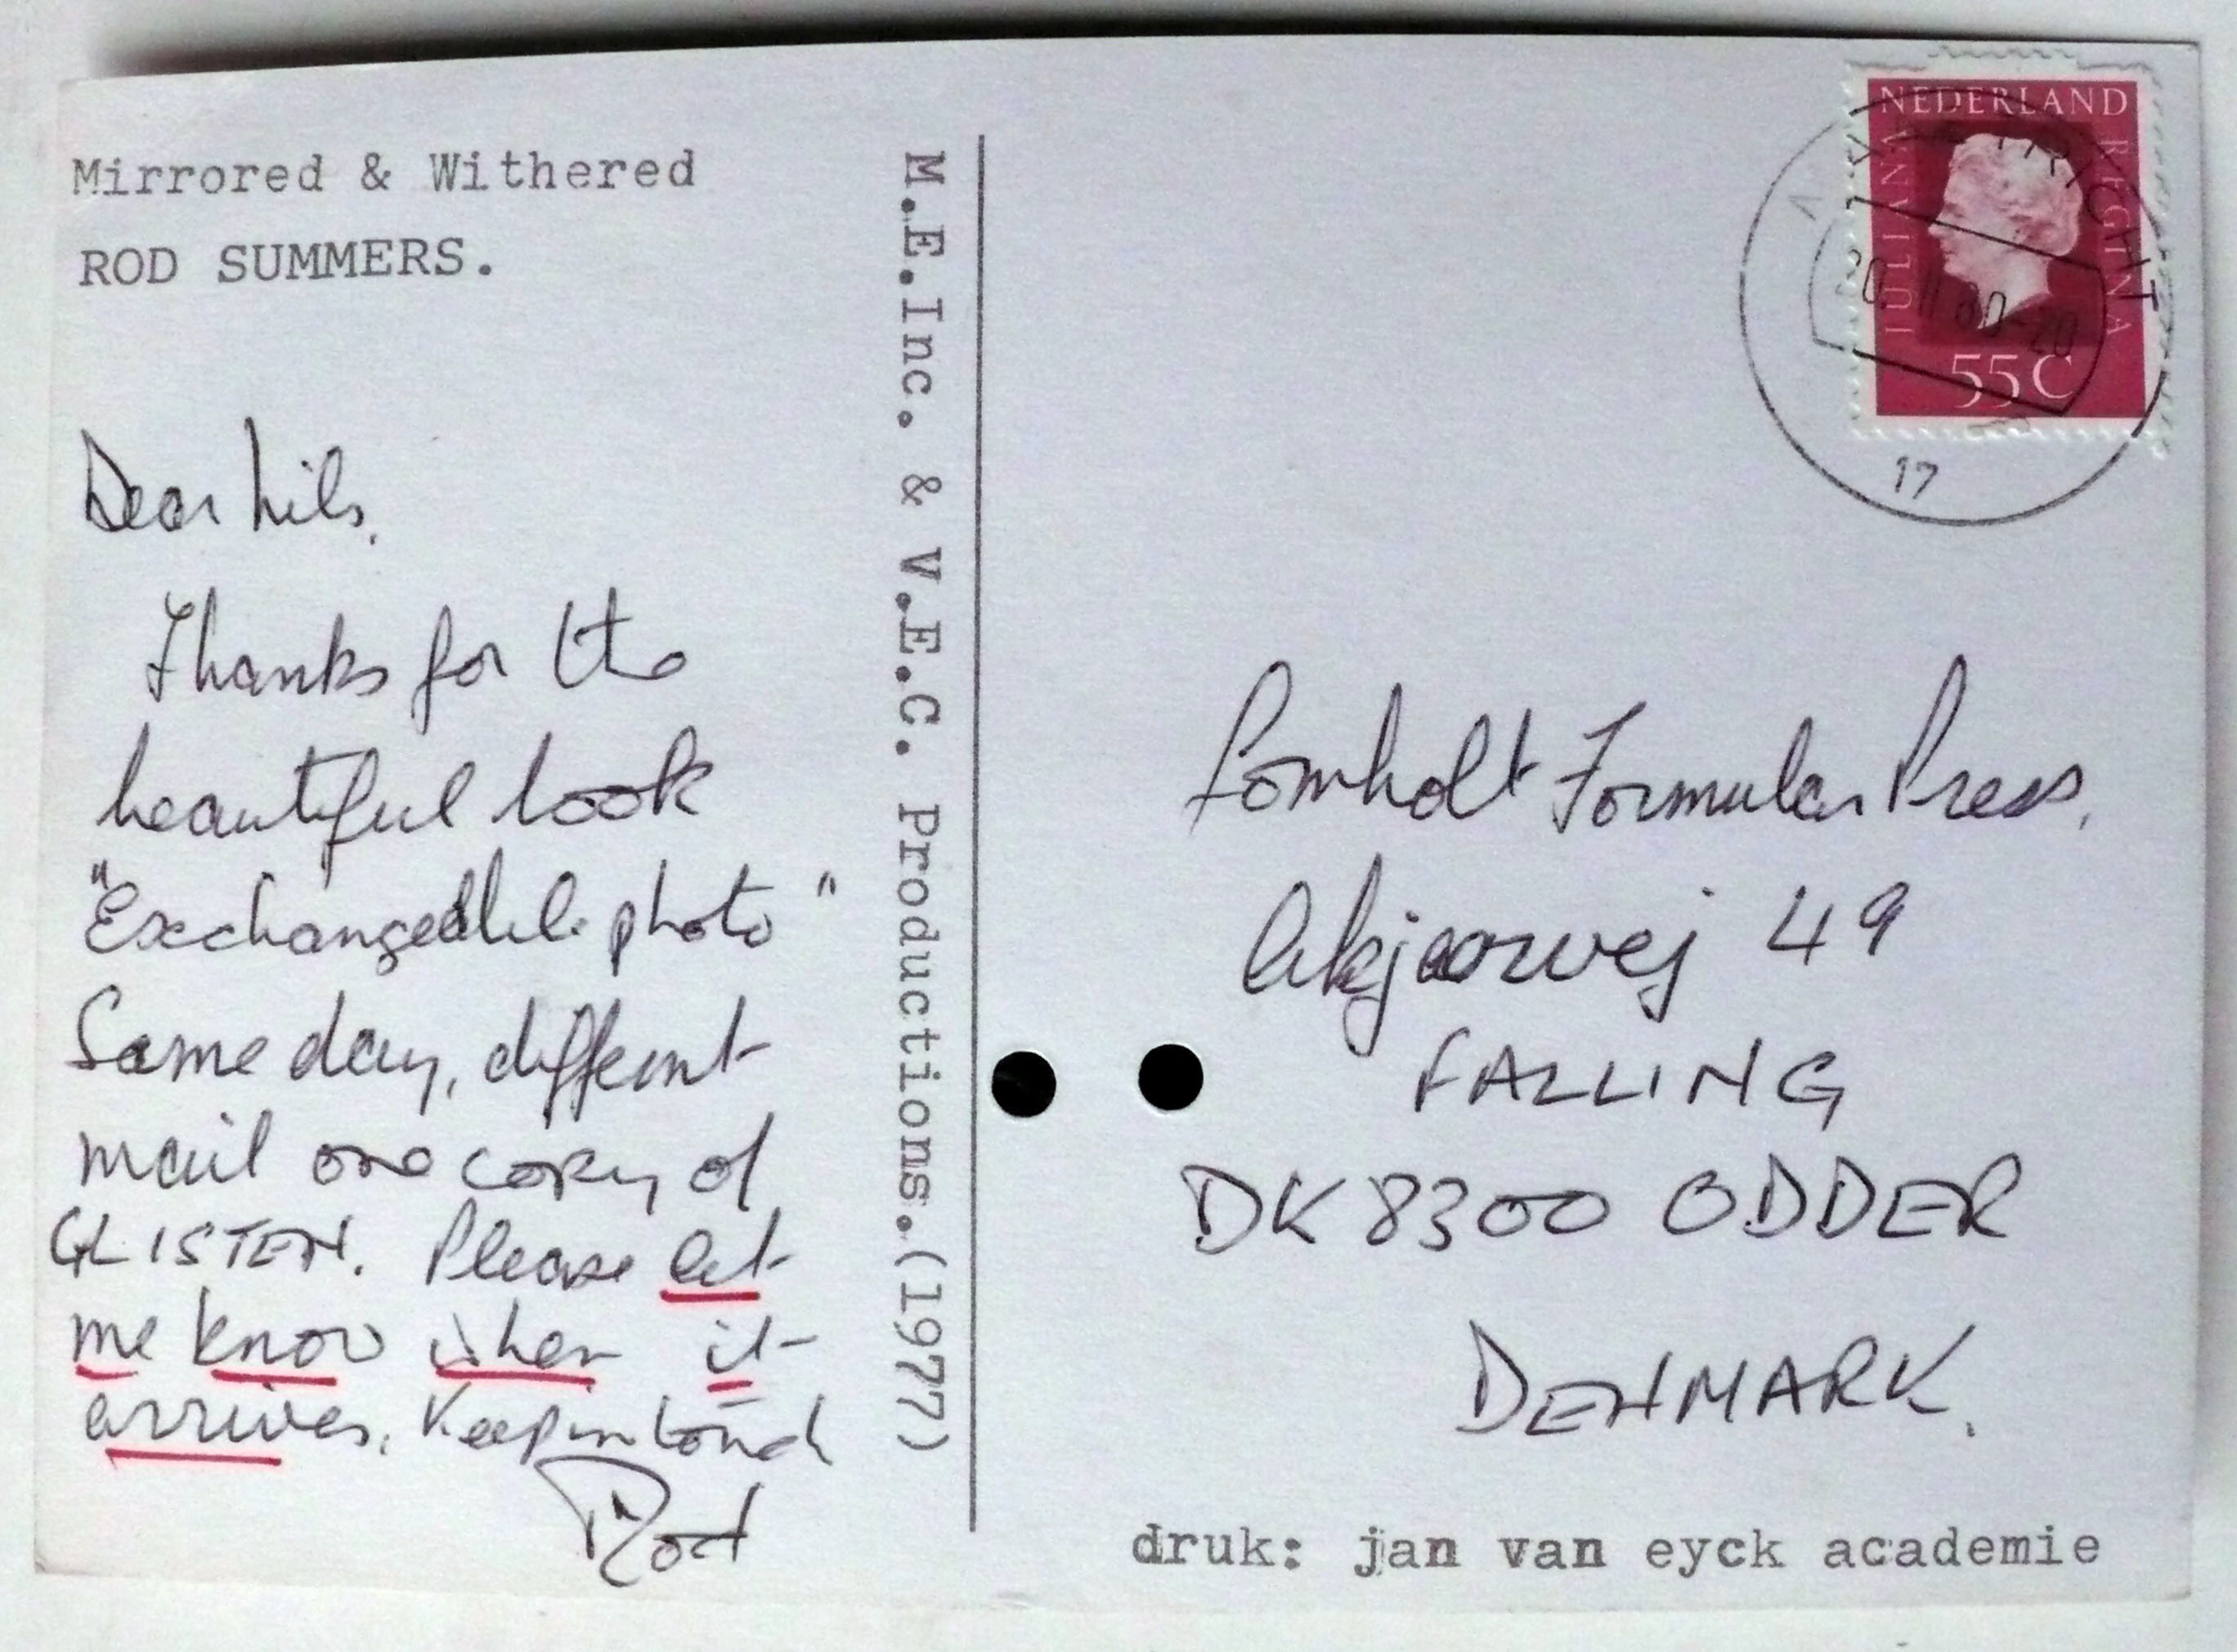 Mirrored & Withered
ROD SUMMERS.
Dear Niels,
Thanks for the
beautiful book
"Exchangeable photo"
Same day, different
mail one copy of
GLISTEN. Please let
me know when it
arrives. Keep in touch
Rod
M.E.Inc. & V.E.C. Productions.(1977)
NEDERLAND
JULIANA
REGINA
55 C
17
Lomholt Formular Press,
Akjaervej 49
FALLING
DK 8300 ODDER
DENMARK.
druk: jan van eyck academie